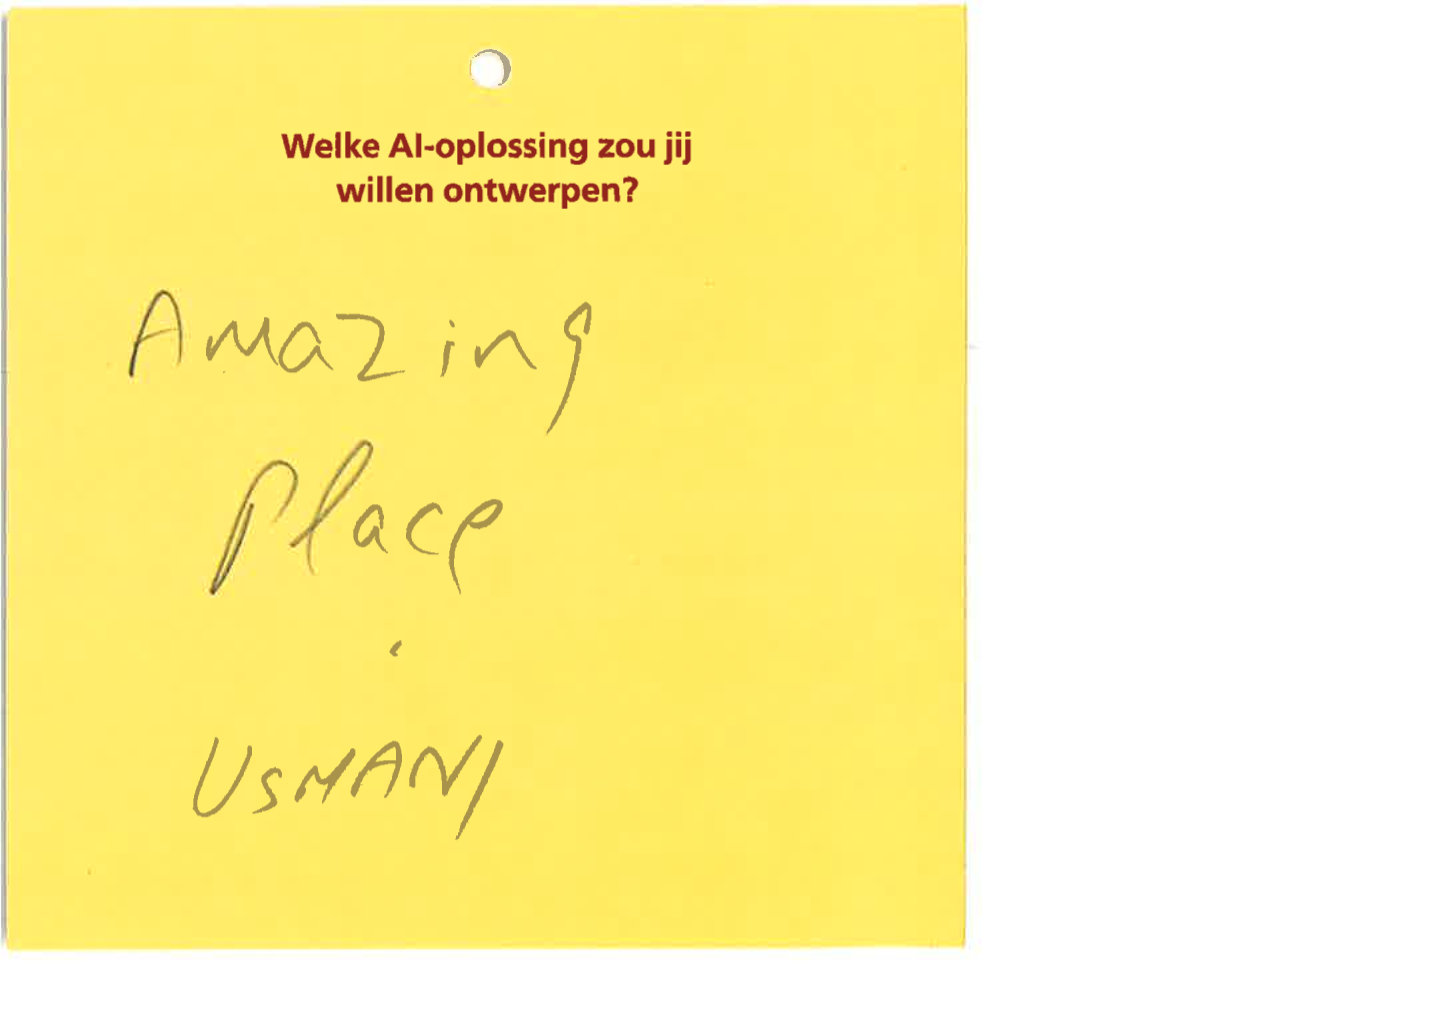 Welke AI-oplossing zou jij
willen ontwerpen?
Amazing
Place
.
USMANI